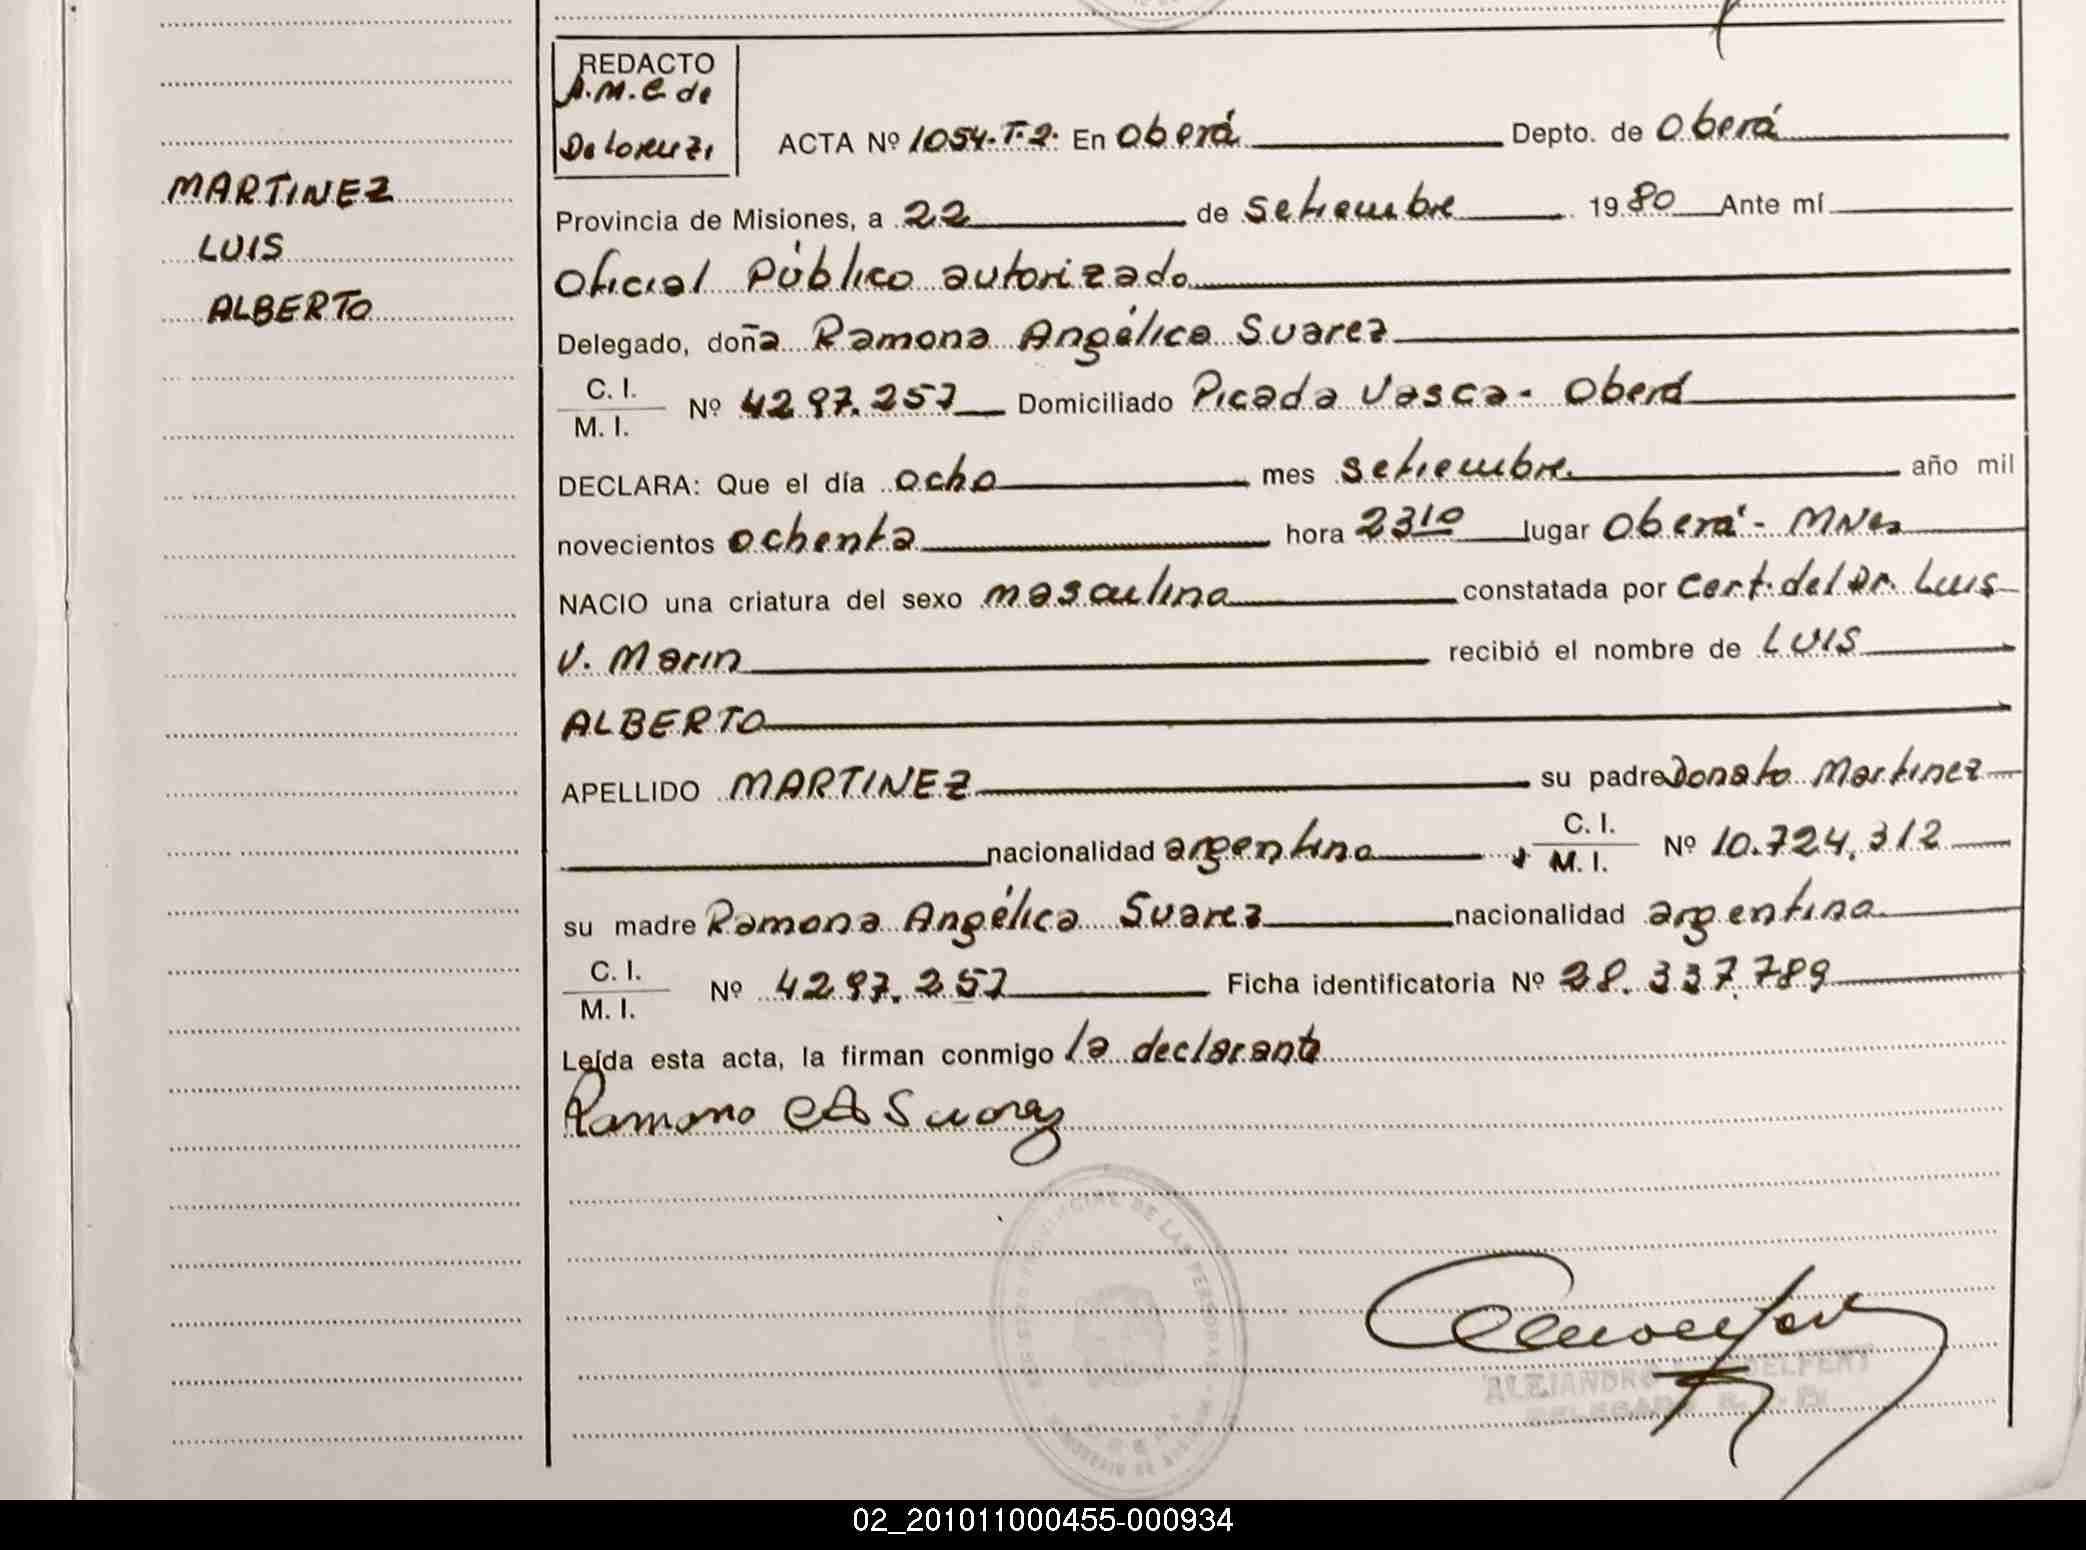 REDACTO
A.M.C de
De Lorenzi
ACTA Nº 1054-T-2- En Oberá Depto. de Oberá
MARTINEZ
LUIS
ALBERTO
Provincia de Misiones, a 22 de setiembre 1980 Ante mí
Oficial Público autorizado
Delegado, doña Ramona Angélica Suarez
C. I.
M. I. Nº 4297.257 Domiciliado Picada Vasca - Oberá
DECLARA: Que el día ocho mes setiembre año mil
novecientos ochenta hora 23 10 lugar Oberá - MNes
NACIO una criatura del sexo masculino constatada por Cert. del Dr. Luis
V. Marin recibió el nombre de LUIS
ALBERTO
APELLIDO MARTINEZ su padre Donato Martinez
nacionalidad argentino C. I.
M. I. Nº 10.724.312
su madre Ramona Angélica Suarez nacionalidad argentina
C. I.
M. I. Nº 4297.257 Ficha identificatoria Nº 28.337.789
Leída esta acta, la firman conmigo la declarante
Ramona A Suarez
REGISTRO PROVINCIAL DE LAS PERSONAS
ALEJANDRO
DELEGADO
02_201011000455-000934